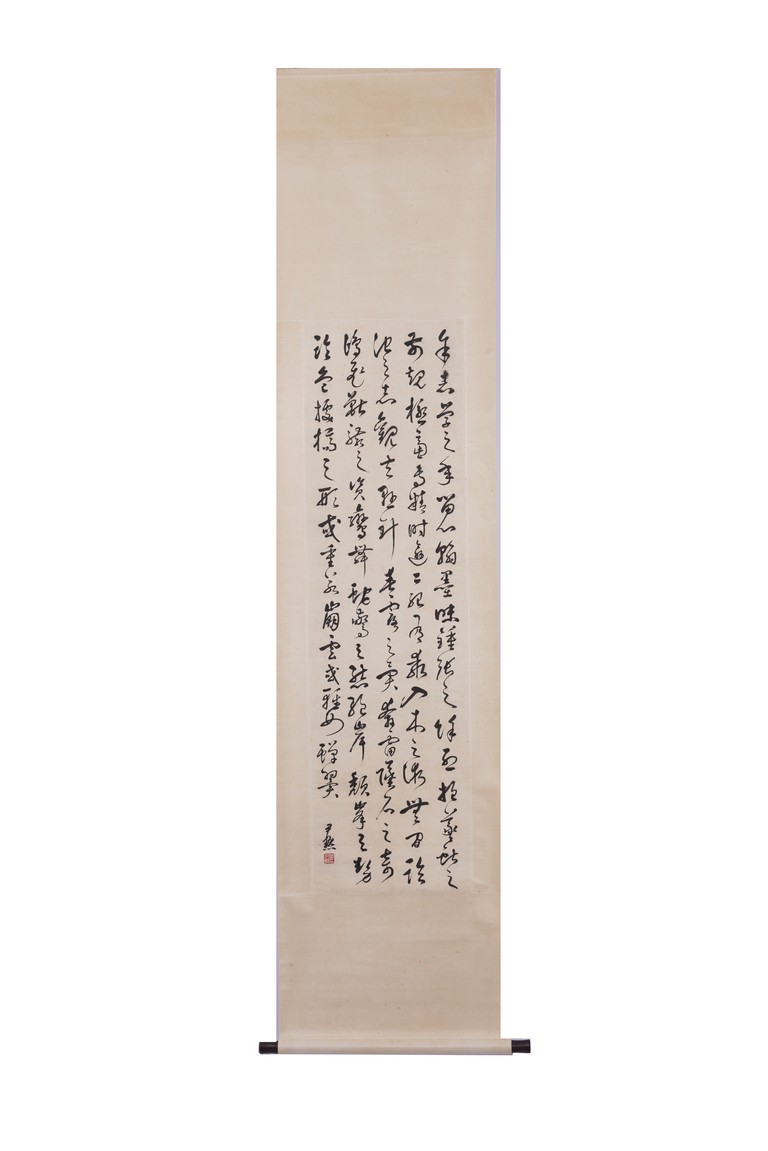 余志學之年留心翰墨味鍾張之餘烈挹羲獻之
前規極慮專精時逾二紀有乖入木之術無間臨
池之志觀夫懸針垂露之異奔雷墜石之奇
鴻飛獸駭之資鸞舞蛇驚之態絕岸頹峯之勢
臨危據槁之形或重若崩雲或輕如蟬翼
尹默